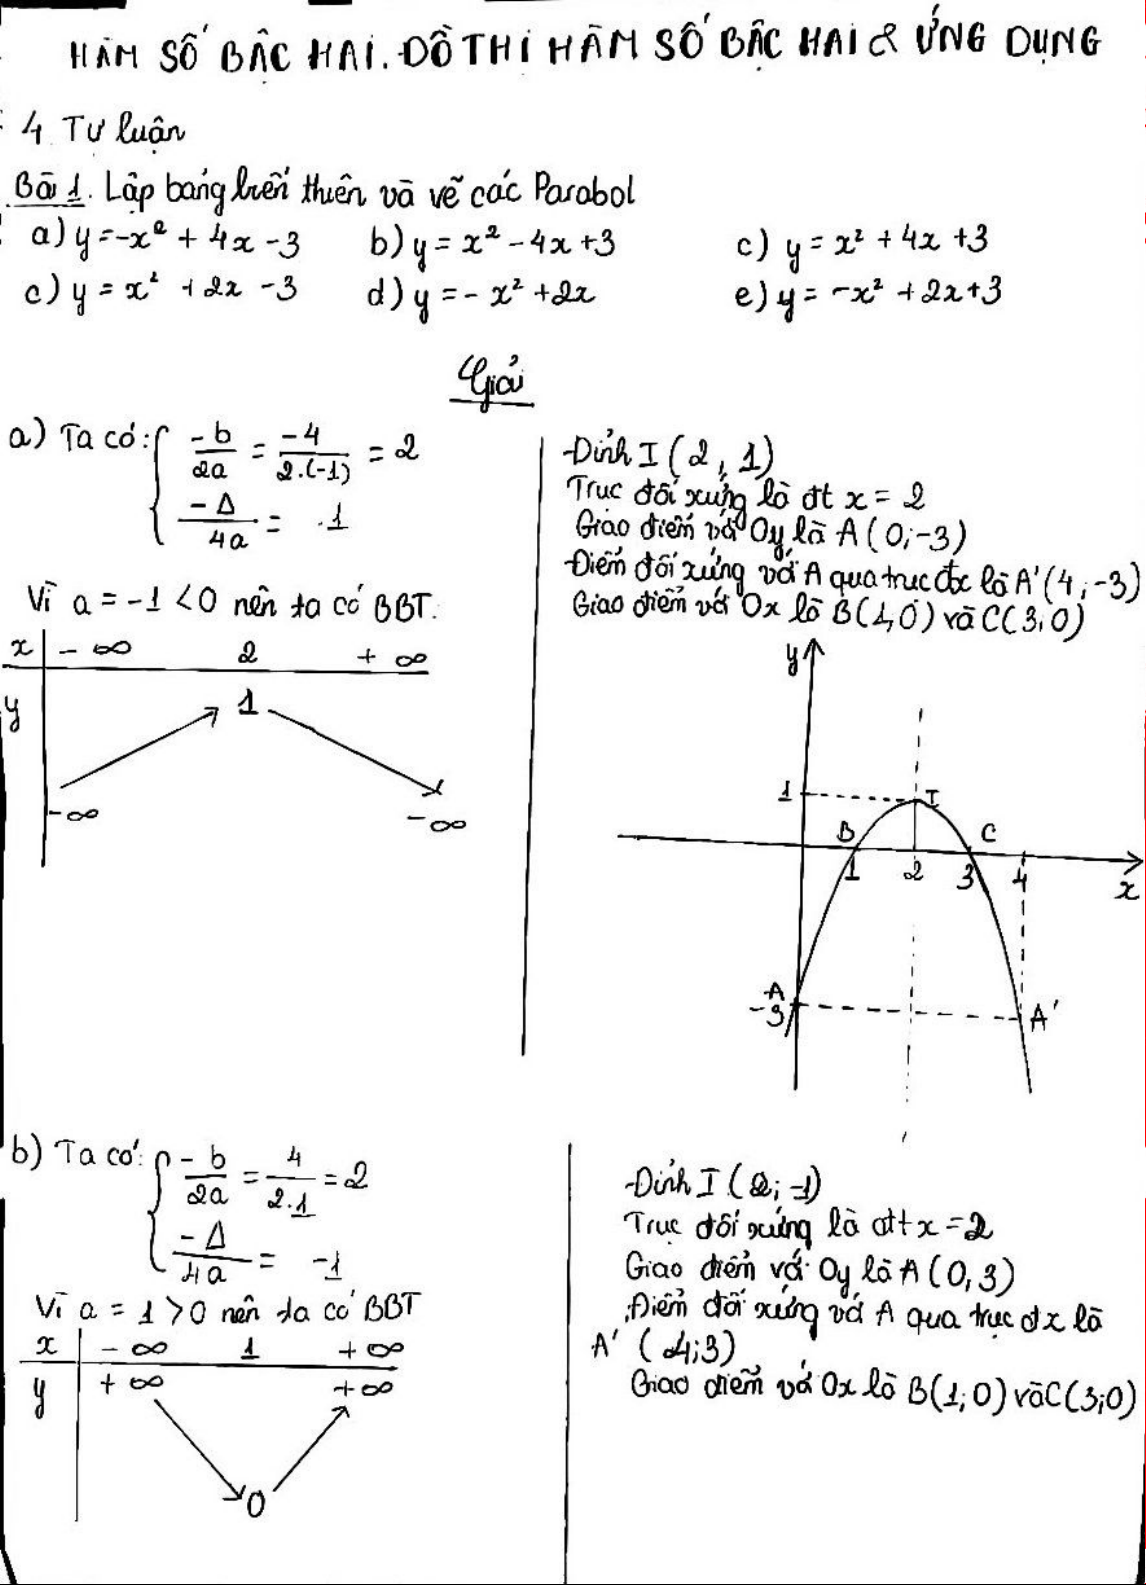 HÀM SỐ BẬC HAI. ĐỒ THỊ HÀM SỐ BẬC HAI & ỨNG DỤNG
4 Tự luận
Bài 1. Lập bảng biến thiên và vẽ các Parabol
a) y = -x² + 4x - 3 b) y = x² - 4x + 3 c) y = x² + 4x + 3
c) y = x² + 2x - 3 d) y = - x² + 2x e) y = -x² + 2x + 3
Giải
a) Ta có: { -b/2a = -4/2.(-1) = 2
-Δ/4a = 1
Vì a = -1 < 0 nên ta có BBT.
x -∞ 2 +∞
y 1
-∞ -∞
Đỉnh I (2, 1)
Trục đối xứng là đt x = 2
Giao điểm với Oy là A (0; -3)
Điểm đối xứng với A qua trục đx là A' (4; -3)
Giao điểm với Ox là B(1, 0) và C(3; 0)
y
1 I
B C
1 2 3 4
x
A
-3 A'
b) Ta có: { -b/2a = 4/2.1 = 2
-Δ/4a = -1
Vì a = 1 > 0 nên ta có BBT
x -∞ 1 +∞
y +∞ +∞
0
Đỉnh I (2; -1)
Trục đối xứng là đtt x = 2
Giao điểm với Oy là A (0, 3)
Điểm đối xứng với A qua trục đx là
A' (4; 3)
Giao điểm với Ox là B(1; 0) và C(3; 0)